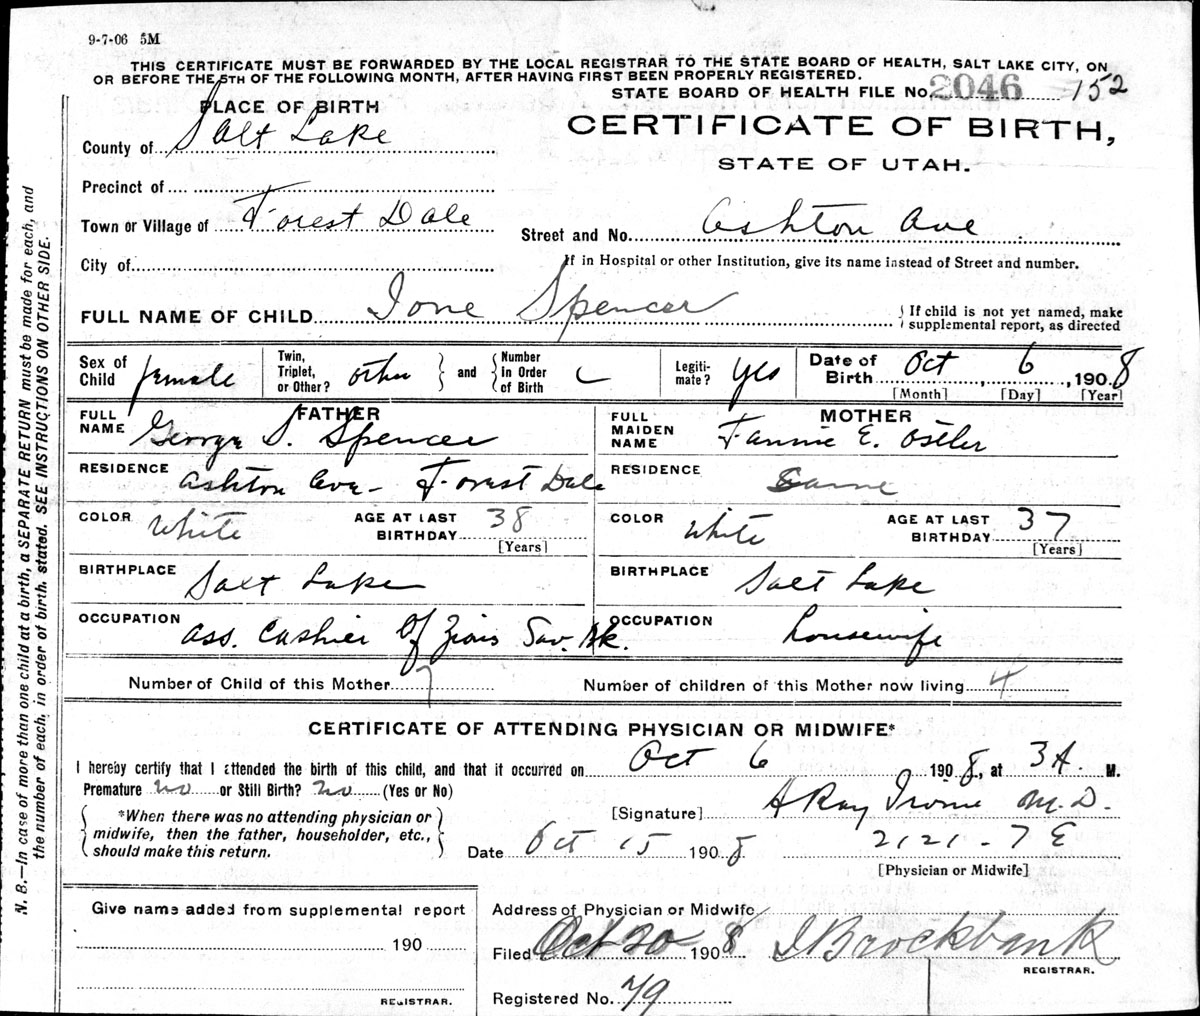 9-7-06 5M
THIS CERTIFICATE MUST BE FORWARDED BY THE LOCAL REGISTRAR TO THE STATE BOARD OF HEALTH, SALT LAKE CITY, ON
OR BEFORE THE 5TH OF THE FOLLOWING MONTH, AFTER HAVING FIRST BEEN PROPERLY REGISTERED.
STATE BOARD OF HEALTH FILE No. 2046 152
PLACE OF BIRTH
CERTIFICATE OF BIRTH,
County of Salt Lake
STATE OF UTAH.
Precinct of
Town or Village of Forest Dale
Street and No. Ashton Ave
City of
If in Hospital or other Institution, give its name instead of Street and number.
FULL NAME OF CHILD Ione Spencer
{ If child is not yet named, make
supplemental report, as directed
Sex of Child female
Twin, Triplet, or Other? other } and { Number In Order of Birth
Legiti-mate? yes
Date of Birth Oct 6, 1908
[Month] [Day] [Year]
FATHER
FULL NAME George S. Spencer
MOTHER
FULL MAIDEN NAME Fannie E. Ostler
RESIDENCE Ashton Ave - Forest Dale
RESIDENCE Same
COLOR White
AGE AT LAST BIRTHDAY 38 [Years]
COLOR White
AGE AT LAST BIRTHDAY 37 [Years]
BIRTHPLACE Salt Lake
BIRTHPLACE Salt Lake
OCCUPATION Ass. Cashier Of Zions Sav. Bk.
OCCUPATION housewife
Number of Child of this Mother 7
Number of children of this Mother now living 4
CERTIFICATE OF ATTENDING PHYSICIAN OR MIDWIFE*
I hereby certify that I attended the birth of this child, and that it occurred on Oct 6 1908, at 3 A. M.
Premature no or Still Birth? no (Yes or No)
[Signature] A Ray Irvine M.D.
{ *When there was no attending physician or
midwife, then the father, householder, etc.,
should make this return. }
Date Oct 15 1908
2121 - 7 E
[Physician or Midwife]
Give name added from supplemental report
190
REGISTRAR.
Address of Physician or Midwife
Filed Oct 20 1908 Brockbank
REGISTRAR.
Registered No. 79
N. B.—In case of more than one child at a birth, a SEPARATE RETURN must be made for each, and
the number of each, in order of birth, stated. SEE INSTRUCTIONS ON OTHER SIDE.